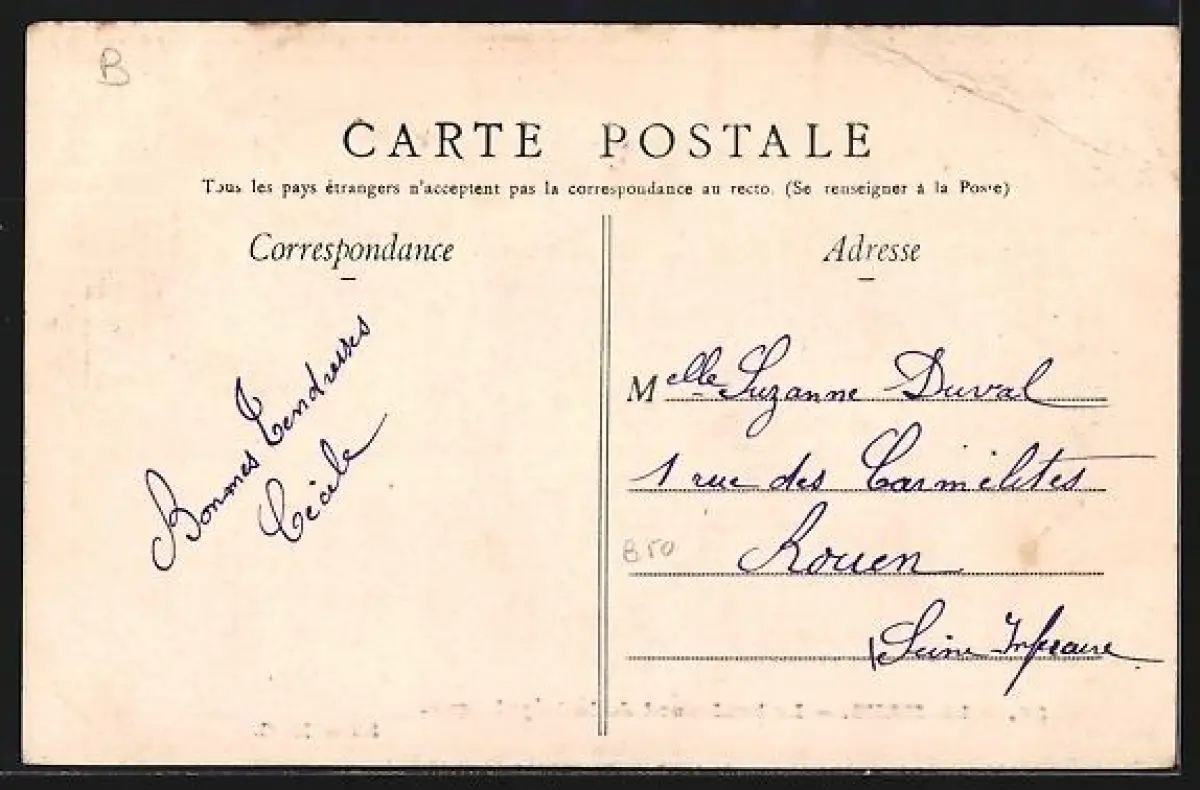 B
CARTE POSTALE
Tous les pays étrangers n'acceptent pas la correspondance au recto. (Se renseigner à la Poste)
Correspondance
Bonnes Tendresses
Cécile
Adresse
Melle Suzanne Duval
1 rue des Carmélites
B50
Rouen
Seine Inférieure